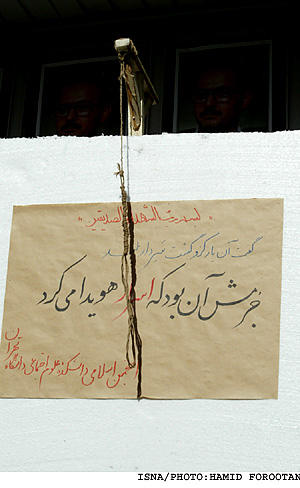 "بسم رب الشهداء و الصدیقین"
گفت آن یار کزو گشت سر دار بلند
جرمش آن بود که اسرار هویدا می کرد
انجمن اسلامی دانشکده علوم اجتماعی دانشگاه تهران
ISNA/PHOTO:HAMID FOROOTAN